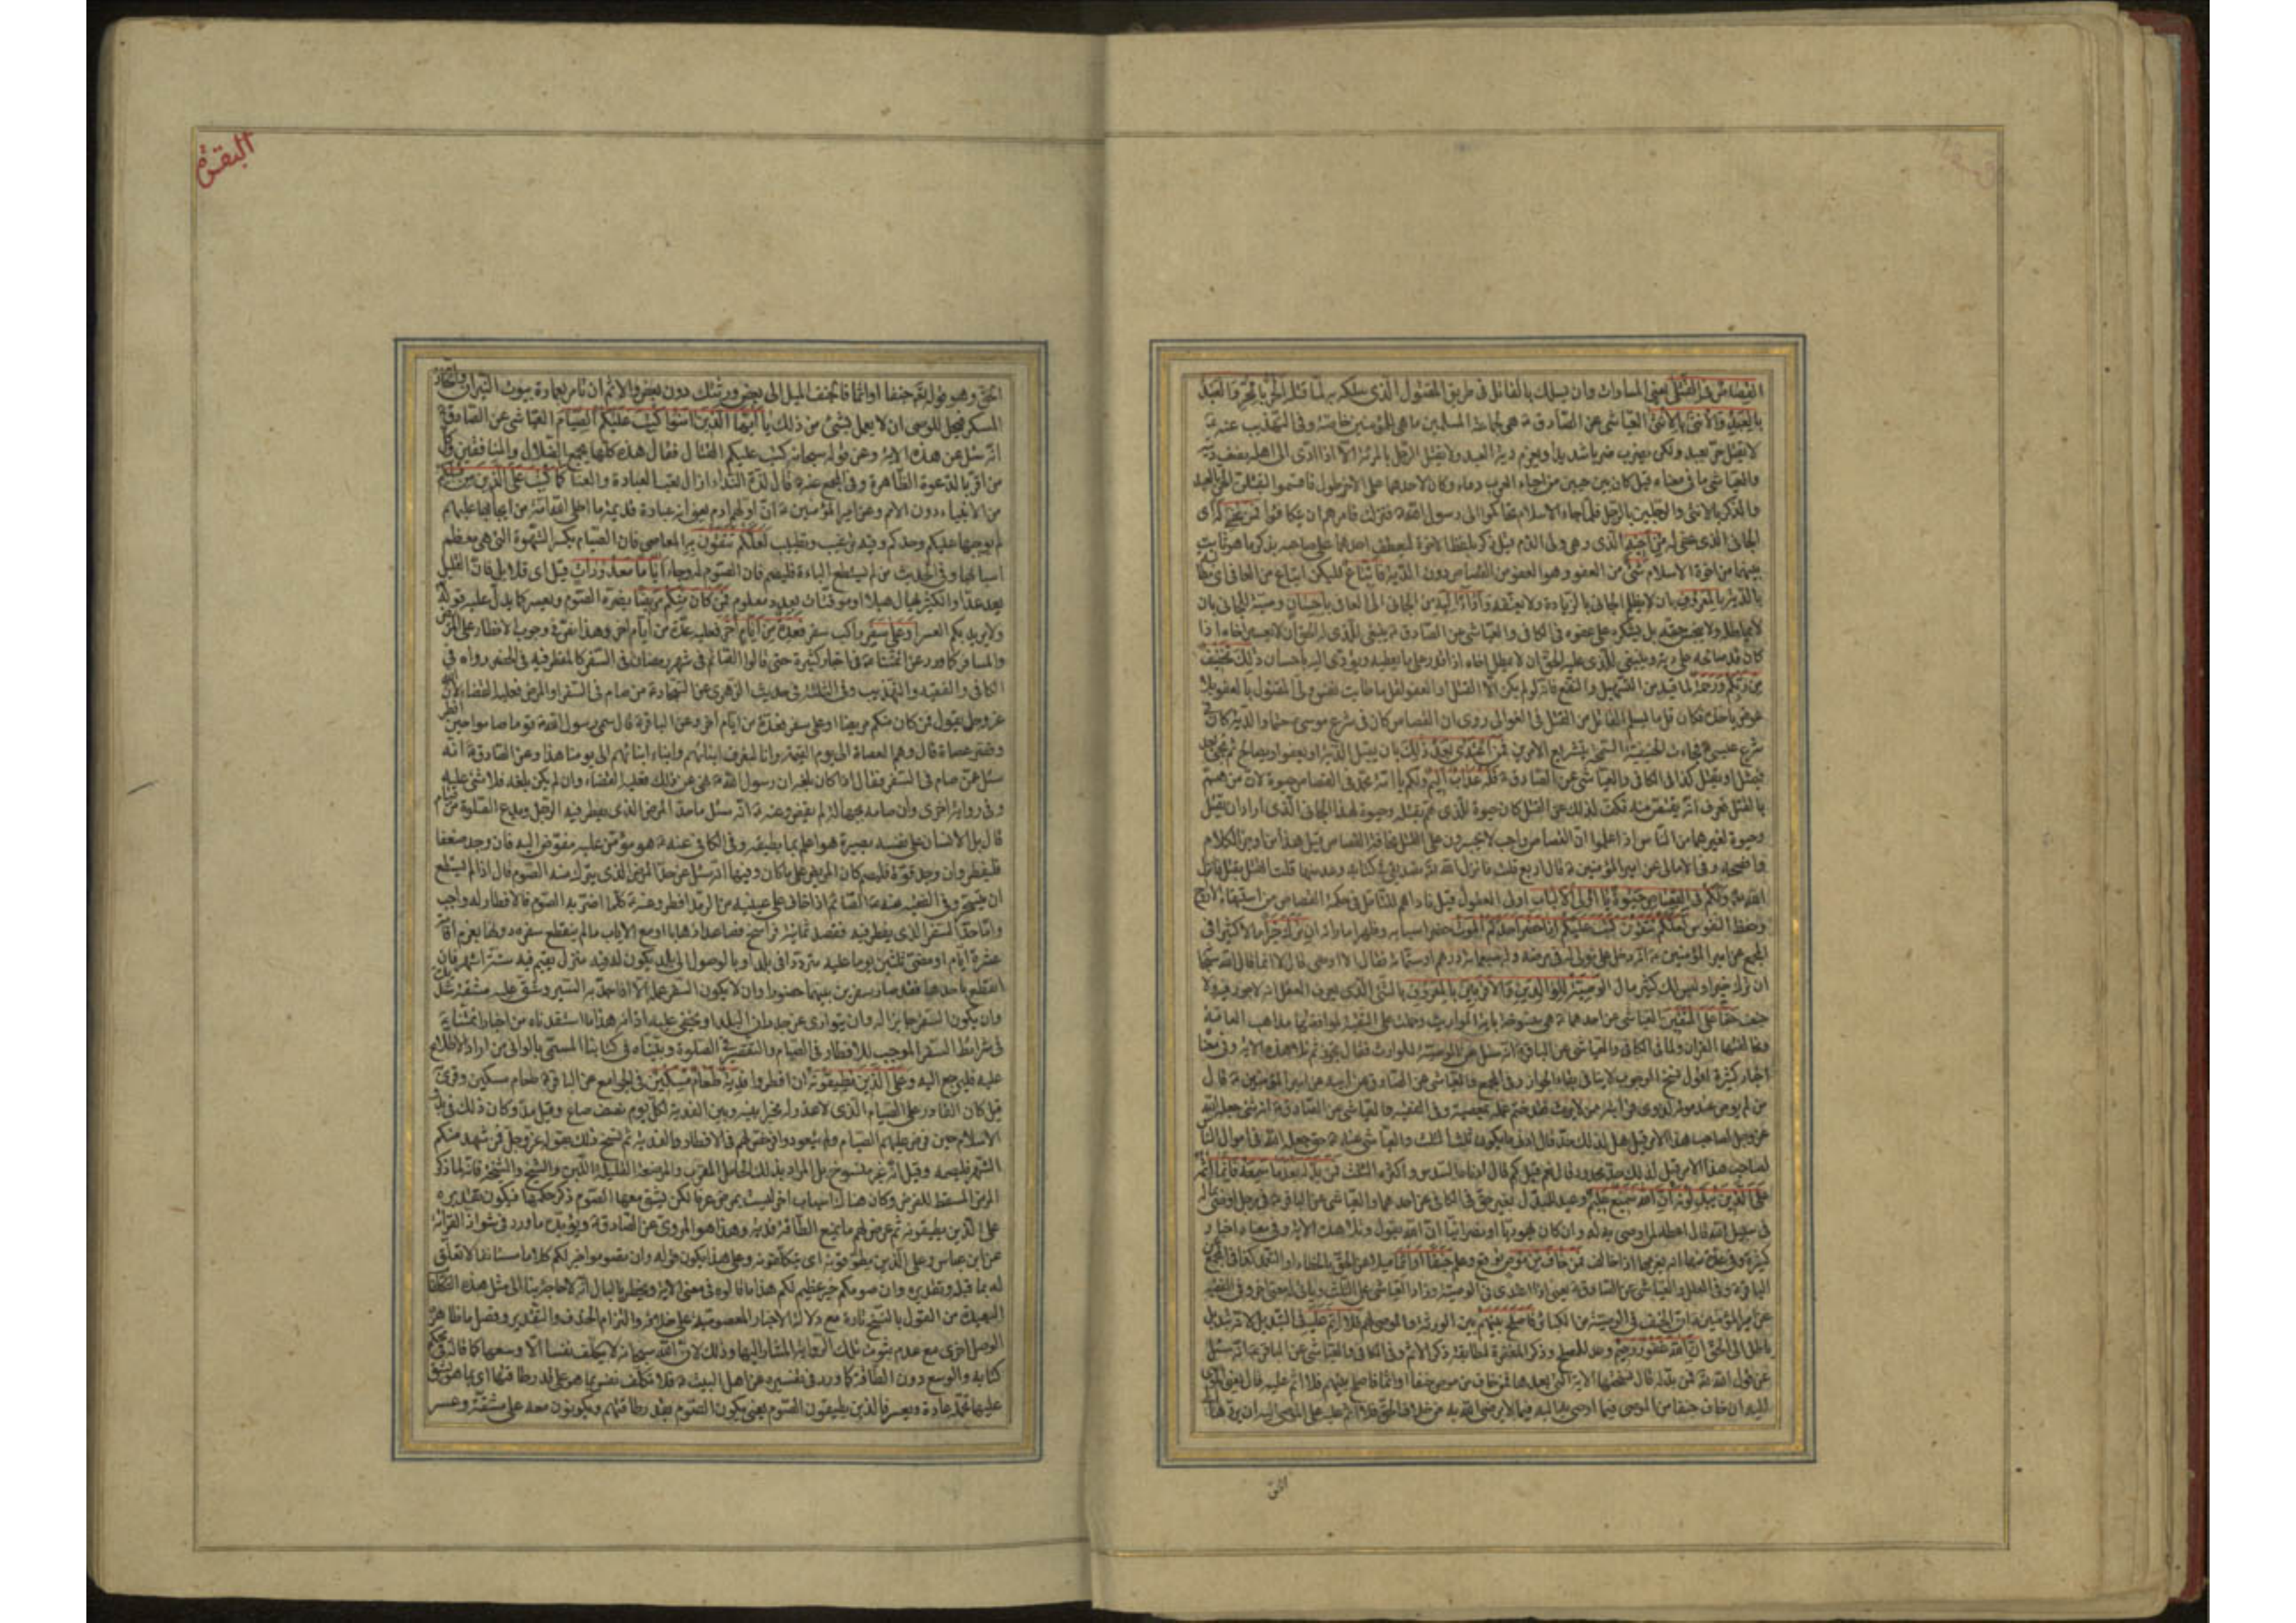 القصاص فى القتلى يعنى المساوات وان يسلك بالقاتل فى طريق المقتول الذى سلكه به لما قتله الحر بالحر والعبد
بالعبد والانثى بالانثى العياشى عن الصادق هى لجماعة المسلمين ما هى للمؤمنين خاصة وفى التهذيب عنه
لا يقتل حر بعبد ولكن يضرب ضربا شديدا ويغرم دية العبد ولا يقتل الرجل بالمرئة الا اذا ادى الى اهله نصف ديته
والعياشى ما فى معناه قيل كان بين حيين من احياء العرب دماء وكان لاحدهما على الاخر طول فاقسموا ليقتلن الحر بالعبد
والذكر بالانثى والرجلين بالرجل فلما جاء الاسلام تحاكموا الى رسول الله فنزلت فامرهم ان يتكافئوا فمن عفى له اى
الجانى الذى عفى له من اخيه الذى هو ولى الدم قيل ذكر بلفظ الاخوة ليعطف احدهما على صاحبه بذكر ما هو ثابت
بينهما من اخوة الاسلام شئ من العفو وهو العفو من القصاص دون الدية فاتباع فليكن اتباع من العافى اى
بالدية بالمعروف بان لا يظلم الجانى بالزيادة ولا يعنفه واداء اليه من الجانى الى العافى باحسان وصية للجانى بان
لا يماطله ولا يبخس حقه بل يشكره على عفوه فى الكافى والعياشى عن الصادق ينبغى للذى له الحق ان لا يعسر اخاه اذا
كان قد صالحه على دية وينبغى للذى عليه الحق ان لا يمطل اخاه اذا قدر على ما يعطيه ويؤدى اليه باحسان ذلك تخفيف
من ربكم ورحمة لما فيه من التسهيل والنفع فانه لو لم يكن الا القتل او العفو لقل ما طابت نفس ولى المقتول بالعفو بلا
عوض ياخذه فكان قل ما يسلم القاتل من القتل فى الغوالى روى ان القصاص كان فى شرع موسى حتما والدية كان
شرع عيسى فجاءت الحنيفية السمحة بتشريع الامرين فمن اعتدى بعد ذلك بان يقبل الدية او يعفو او يصالح ثم يجئ بعد
فيمثل او يقتل كذا فى الكافى والعياشى عن الصادق فله عذاب اليم ولكم يا امة محمد فى القصاص حيوة لان من هم
بالقتل فعرف انه يقتص منه فكف لذلك عن القتل كان حيوة للذى هم بقتله وحيوة لهذا الجانى الذى اراد ان يقتل
وحيوة لغيرهما من الناس اذا علموا ان القصاص واجب لا يجسرون على القتل مخافة القصاص قيل هذا من اوجز الكلام
وافصحه وفى الامالى عن امير المؤمنين قال اربع قلت فانزل الله تصديقى فى كتابه وعد منها قلت القتل يقل القتل
الله ولكم فى القصاص حيوة يا اولى الالباب اولى العقول قيل ناداهم للتامل فى حكمة القصاص من استبقاء الارواح
وحفظ النفوس لعلكم تتقون كتب عليكم اذا حضر احدكم الموت حضر اسبابه وظهر اماراته ان ترك خيرا مالا كثيرا فى
المجمع عن امير المؤمنين انه دخل على مولى له فى مرضه وله سبعمائة درهم او ستمائة فقال الا اوصى قال لا انما قال الله سبحانه
ان ترك خيرا وليس لك كثير مال الوصية للوالدين والاقربين بالمعروف بالشئ الذى يعرف العقل انه لا جور فيه ولا
جنف حقا على المتقين العياشى عن احدهما هى منسوخة باية المواريث وحملت على التقية لموافقتها مذاهب العامة
ومخالفتها القران ولما فى الكافى والعياشى عن الباقر انه سئل عن الوصية للوارث فقال يجوز ثم تلا هذه الاية وفى معناه
اخبار كثيرة اقول نسخ الوجوب لا ينافى بقاء الجواز وفى المجمع والعياشى عن الصادق عن ابيه عن امير المؤمنين قال
من لم يوص عند موته لذوى قرابته من لا يرث فقد ختم عمله بمعصية وفى الفقيه والعياشى عن الصادق انه شئ جعله الله
عز وجل لصاحب هذا الامر قيل هل لذلك حد قال ادنى ما يكون ثلث الثلث والعياشى عنه حق جعل الله فى اموال الناس
لصاحب هذا الامر قيل لذلك حد محدود قال نعم قيل كم قال ادناه السدس واكثره الثلث فمن بدله بعد ما سمعه فانما اثمه
على الذين يبدلونه ان الله سميع عليم وعيد للمبدل بغير حق فى الكافى عن احدهما والعياشى عن الباقر فى رجل اوصى بماله
فى سبيل الله قال اعطه لمن اوصى به له وان كان يهوديا او نصرانيا ان الله يقول وتلا هذه الاية وفى معناه اخبار
كثيرة وفى عدة منها انه يغرمها اذا خالف فمن خاف من موص توقع وعلم جنفا او اثما ميلا عن الحق بالخطاء او التعمد كذا فى المجمع
الباقر وفى العلل والعياشى عن الصادق يعنى اذا اعتدى فى الوصية وزاد العياشى على الثلث وياتى له معنى اخر وفى الفقيه
عن امير المؤمنين ان الجنف فى الوصية من الكبائر فاصلح بينهم بين الورثة والموصى لهم فلا اثم عليه فى التبديل لانه تبديل
باطل الى الحق ان الله غفور رحيم وعد للمصلح وذكر المغفرة لمطابقة ذكر الاثم وفى الكافى والعياشى عن الباقر انه سئل
عن قول الله فمن بدله قال نسختها الاية التى بعدها فمن خاف من موص جنفا او اثما فاصلح بينهم فلا اثم عليه قال يعنى الموصى
اليه ان خاف جنفا من الموصى فيما اوصى به اليه فيما لا يرضى الله به من خلاف الحق فلا اثم عليه على الموصى اليه ان يرده الى
الحق
البقرة
الحق وهو قوله جنفا او اثما فالجنف الميل الى بعض ورثتك دون بعض والاثم ان تامر بعمارة بيوت النيران واتخاذ
المسكر فيحل للوصى ان لا يعمل بشئ من ذلك يا ايها الذين امنوا كتب عليكم الصيام العياشى عن الصادق
انه سئل عن هذه الاية وعن قوله سبحانه كتب عليكم القتال فقال هذه كلها يجمع الضلال والمنافقين وكل
من اقر بالدعوة الظاهرة وفى المجمع عنه قال لذة النداء ازال تعب العبادة والعنا كما كتب على الذين من قبلكم
من الانبياء دون الامم وعن امير المؤمنين ان اولهم ادم يعنى انه عبادة قديمة ما اخلى الله امة من ايجابها عليهم
لم يوجبها عليكم وحدكم وفيه ترغيب وتطييب لعلكم تتقون به المعاصى فان الصيام يكسر الشهوة التى هى معظم
اسبابها وفى الحديث من لم يستطع الباءة فليصم فان الصوم له وجاء اياما معدودات قيل اى قلايل فان القليل
يعد عدا والكثير يهال هيلا او موقتات بعدد معلوم فمن كان منكم مريضا يضره الصوم ويعسر كما يدل عليه قوله
ولا يريد بكم العسر او على سفر راكب سفر فعدة من ايام اخر فعليه عدة من ايام اخر وهذا نص فى وجوب الافطار على المريض
والمسافر كما ورد عن ائمتنا فى اخبار كثيرة حتى قالوا الصائم فى شهر رمضان فى السفر كالمفطر فيه فى الحضر رواه فى
الكافى والفقيه والتهذيب وفى الثلثة فى حديث الزهرى عن السجاد من صام فى السفر او المرض فعليه القضاء لان الله
عز وجل يقول فمن كان منكم مريضا او على سفر فعدة من ايام اخر وعن الباقر قال سمى رسول الله قوما صاموا حين افطر
وقصر عصاة قال وهم العصاة الى يوم القيمة وانا لنعرف ابنائهم وابناء ابنائهم الى يومنا هذا وعن الصادق انه
سئل عمن صام فى السفر فقال اذا كان بلغه ان رسول الله نهى عن ذلك فعليه القضاء وان لم يكن بلغه فلا شئ عليه
وفى رواية اخرى وان صامه بجهالة لم يقضه وعنه انه سئل ما حد المرض الذى يفطر فيه الرجل ويدع الصلوة من قيام
قال بل الانسان على نفسه بصيرة هو اعلم بما يطيقه وفى الكافى عنه هو مؤتمن عليه مفوض اليه فان وجد ضعفا
فليفطر وان وجد قوة فليصم كان المرض على ما كان وفيهما انه سئل عن حد المرض الذى يترك منه الصوم قال اذا لم يستطع
ان يتسحر وفى الفقيه عنه الصائم اذا خاف على عينيه من الرمد افطر وعنه كلما اضر به الصوم فالافطار له واجب
واما حد السفر الذى يفطر فيه فقصد ثمانية فراسخ فصاعدا ذهابا او مع الاياب ما لم ينقطع سفره دونها بعزم اقامة
عشرة ايام او مضى ثلثين يوما عليه مترددا فى بلد او بالوصول الى بلد يكون له فيه منزل يقيم فيه ستة اشهر فان
انقطع باحدها فقد صار سفرين بينهما حضور وان لا يكون السفر عمله الا اذا جد به السير وشق عليه مشقة شديدة
وان يكون السفر جايزا له وان يتوارى عن جدران البلد او يخفى عليه اذانه هذا ما استفدناه من اخبار ائمتنا
فى شرائط السفر الموجب للافطار فى الصيام والتقصير فى الصلوة وبيناه فى كتابنا المسمى بالوافى من اراد الاطلاع
عليه فليرجع اليه وعلى الذين يطيقونه ان افطروا فدية طعام مسكين فى الجوامع عن الباقر طعام مسكين وقرئ
قيل كان القادر على الصيام الذى لا عذر له مخيرا بينه وبين الفدية لكل يوم نصف صاع وقيل مد وكان ذلك فى بدو
الاسلام حين فرض عليهم الصيام ولم يتعودوا فرخص لهم فى الافطار والفدية ثم نسخ ذلك بقوله عز وجل فمن شهد منكم
الشهر فليصمه وقيل انه غير منسوخ بل المراد بذلك الحامل المقرب والمرضعة القليلة اللبن والشيخ والشيخة فانه لما ذكر
المرض المسقط للفرض وكان هناك اسباب اخر ليست بمرض عرفا لكن يشق معها الصوم ذكر حكمها فيكون تقديره
على الذين يطيقونه ثم عرض لهم ما يمنع الطاقة فدية وهذا هو المروى عن الصادق ويؤيده ما ورد فى شواذ القرائة
عن ابن عباس وعلى الذين يطوقونه اى يتكلفونه وعلى هذا يكون قوله وان تصوموا خير لكم كلاما مستانفا لا تعلق
له بما قبله وتقديره وان صومكم خير عظيم لكم هذا ما قالوه فى معنى الاية ويخطر بالبال انه لا حاجة بنا الى مثل هذه التكلفات
البعيدة من القول بالنسخ تارة مع دلالة الاخبار المعصومية على خلافه والتزام الحذف والتقدير وفصل ما ظاهره
الوصل اخرى مع عدم ثبوت تلك الرواية المشار اليها وذلك لان الله سبحانه لا يكلف نفسا الا وسعها كما قاله فى محكم
كتابه والوسع دون الطاقة كما ورد فى تفسيره عن اهل البيت فلا تكلف نفس بما هو على قدر طاقتها اى بما هو يشق
عليها تحمله عادة ويعسر فالذين يطيقون الصوم يعنى يكون الصوم بقدر طاقتهم ويكونون معه على مشقة وعسر